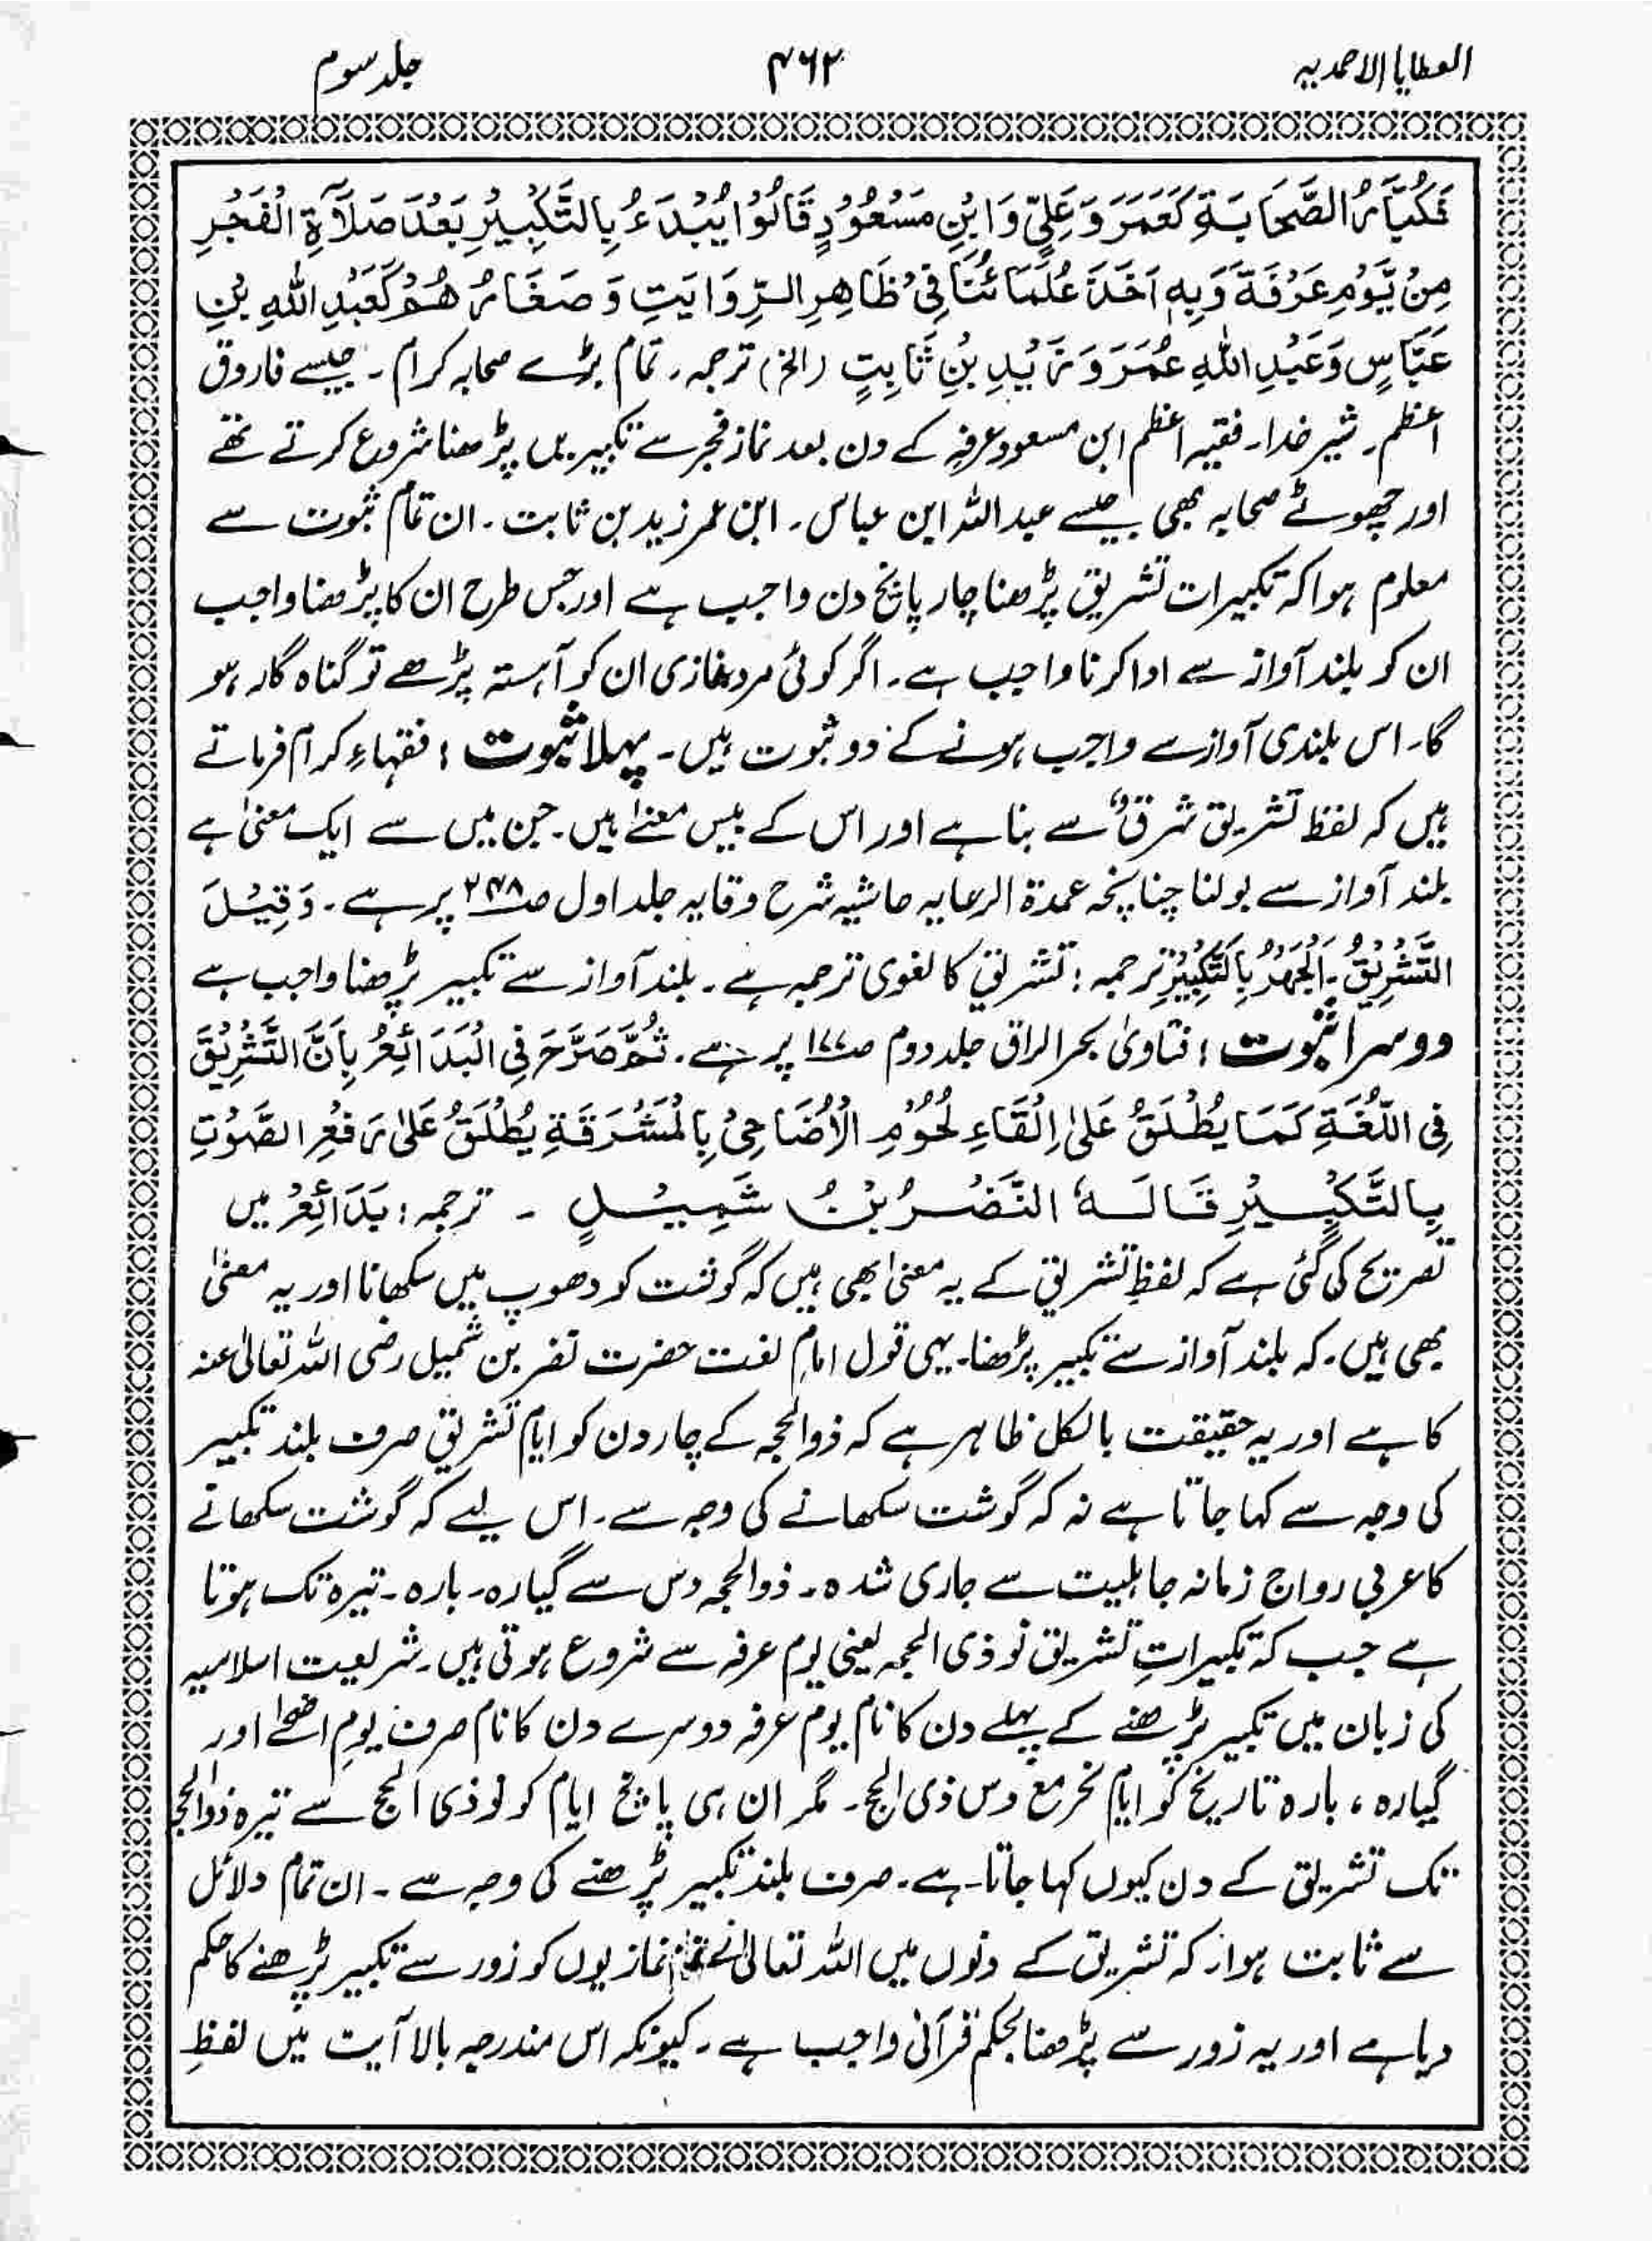 العطایا الاحمدیہ
۴۶۲
جلد سوم
فَكُبَّارُ الصَّحَابَةِ كَعُمَرَ وَعَلِيٍّ وَابْنِ مَسْعُوْدٍ قَالُوْا يُبْدَءُ بِالتَّكْبِيْرِ بَعْدَ صَلَاَةِ الْفَجْرِ
مِنْ يَّوْمِ عَرَفَةَ وَبِهٖ اَخَذَ عُلَمَائُنَا فِیْ ظَاهِرِ الرِّوَايَتِ وَصَغَارُ هُمْ كَعَبْدِ اللّٰهِ بْنِ
عَبَّاسٍ وَعَبْدِ اللّٰهِ عُمَرَ وَزَيْدِ بْنِ ثَابِتٍ (الخ) ترجمہ۔ تمام بڑے صحابہ کرام۔ جیسے فاروق
اعظم۔ شیر خدا۔ فقیہ اعظم ابن مسعود عرفہ کے دن بعد نماز فجر سے تکبیریں پڑھنا شروع کرتے تھے
اور چھوٹے صحابہ بھی جیسے عبد اللہ ابن عباس۔ ابن عمر زید بن ثابت۔ ان تمام ثبوت سے
معلوم ہوا کہ تکبیرات تشریق پڑھنا چار پانچ دن واجب ہے اور جس طرح ان کا پڑھنا واجب
ان کو بلند آواز سے ادا کرنا واجب ہے۔ اگر کوئی مرد نمازی ان کو آہستہ پڑھے تو گناہ گار ہو
گا۔ اس بلندی آواز سے واجب ہونے کے دو ثبوت ہیں۔ پہلا ثبوت : فقہاءِ کرام فرماتے
ہیں کہ لفظ تشریق شرقٌ سے بنا ہے اور اس کے بیس معنےٰ ہیں۔ جن میں سے ایک معنیٰ ہے
بلند آواز سے بولنا چنانچہ عمدۃ الرعایہ حاشیہ شرح وقایہ جلد اول صـ۲۴۸ پر ہے۔ وَقِيْلَ
التَّشْرِيْقُ۔ اَلْجَهْرُ بِالتَّكْبِيْرِ ترجمہ : تشریق کا لغوی ترجمہ ہے۔ بلند آواز سے تکبیر پڑھنا واجب ہے
دوسرا ثبوت : فتاویٰ بحر الراق جلد دوم صـ۱۷۷ پر ہے۔ ثُمَّ صَرَّحَ فِی الْبَدَائِعُ بِاَنَّ التَّشْرِيْقَ
فِی اللُّغَةِ كَمَا يُطْلَقُ عَلیٰ اِلْقَاءِ لُحُوْمِ الْاُضَاحِیْ بِالْمَشْرَقَةِ يُطْلَقُ عَلیٰ رَفْعِ الصَّوْتِ
بِالتَّكْبِيْرِ قَالَـهٗ النَّضْرُ بْنُ شَمِيْلٍ ۔ ترجمہ : بَدَائِعُ میں
تصریح کی گئی ہے کہ لفظِ تشریق کے یہ معنیٰ بھی ہیں کہ گوشت کو دھوپ میں سکھانا اور یہ معنیٰ
بھی ہیں۔ کہ بلند آواز سے تکبیر پڑھنا۔ یہی قول امامِ لغت حضرت نضر بن شمیل رضی اللہ تعالیٰ عنہ
کا ہے اور یہ حقیقت بالکل ظاہر ہے کہ ذوالحجہ کے چار دن کو ایام تشریق صرف بلند تکبیر
کی وجہ سے کہا جاتا ہے نہ کہ گوشت سکھانے کی وجہ سے۔ اس لیے کہ گوشت سکھانے
کا عربی رواج زمانہ جاہلیت سے جاری شدہ۔ ذوالحجہ دس سے گیارہ۔ بارہ۔ تیرہ تک ہوتا
ہے جب کہ تکبیراتِ تشریق نو ذی الحجہ یعنی یوم عرفہ سے شروع ہوتی ہیں۔ شریعت اسلامیہ
کی زبان میں تکبیر پڑھنے کے پہلے دن کا نام یوم عرفہ دوسرے دن کا نام صرف یومِ اضحےٰ اور
گیارہ، بارہ تاریخ کو ایام نحر مع دس ذی الحج۔ مگر ان ہی پانچ ایام کو نو ذی الحج سے تیرہ ذوالحجہ
تک تشریق کے دن کیوں کہا جاتا ہے۔ صرف بلند تکبیر پڑھنے کی وجہ سے۔ ان تمام دلائل
سے ثابت ہوا۔ کہ تشریق کے دنوں میں اللہ تعالیٰ نے نمازیوں کو زور سے تکبیر پڑھنے کا حکم
دیا ہے اور یہ زور سے پڑھنا بحکم قرآنی واجب ہے۔ کیونکہ اس مندرجہ بالا آیت میں لفظِ